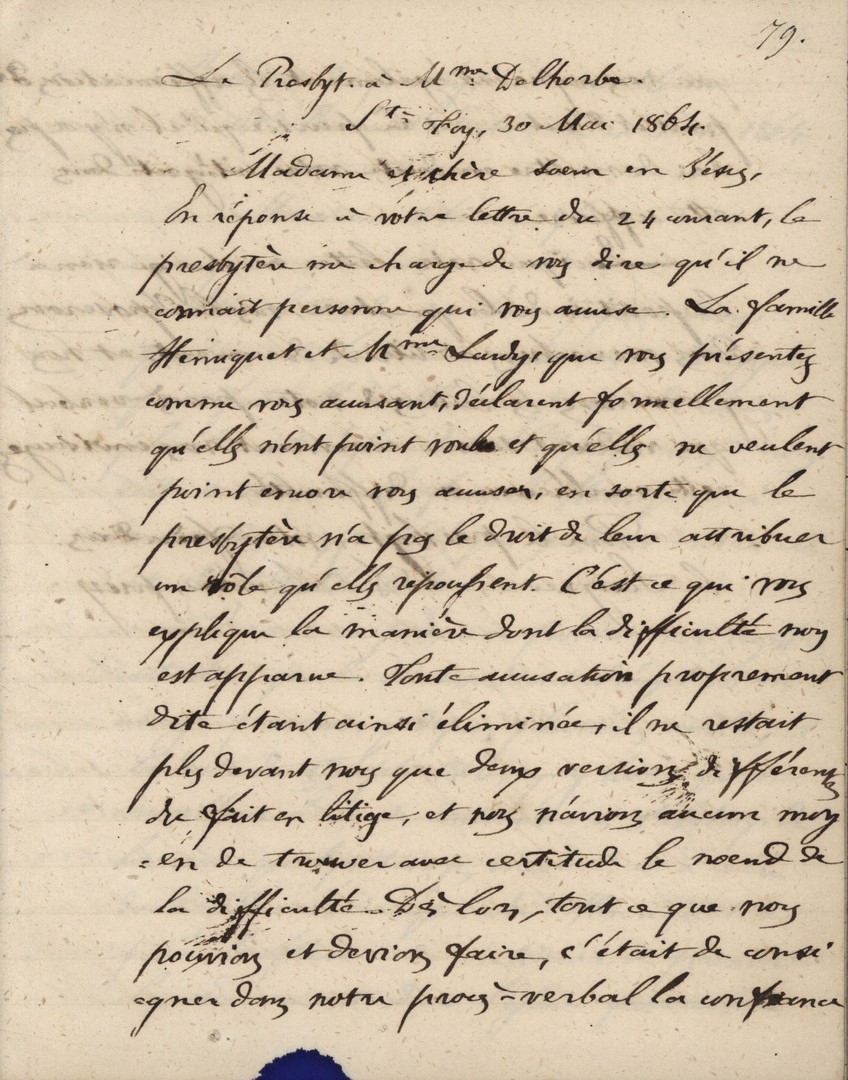 79.
Le Presbyt. à Mme Delhorbe.
St Foy, 30 Mai 1864.
Madame et chère soeur en Jésus,
En réponse à vôtre lettre du 24 courant, le
presbytère me charge de vous dire qu'il ne
connaît personne qui vous accuse. La famille
Henriquet et Mme Lardy, que vous présentez
comme vous accusant, déclarent formellement
qu'elles n'ont point voulu et qu'elles ne veulent
point encore vous accuser, en sorte que le
presbytère n'a pas le droit de leur attribuer
un rôle qu'elles repoussent. C'est ce qui vous
explique la manière dont la difficulté nous
est apparue. Toute accusation proprement
dite étant ainsi éliminée, il ne restait
plus devant nous que deux versions différentes
du fait en litige, et nous n'avions aucun moy
=en de trouver avec certitude le noeud de
la difficulté. Dès lors, tout ce que nous
pouvions et devions faire, c'était de consi
gner dans notre procès-verbal la confiance